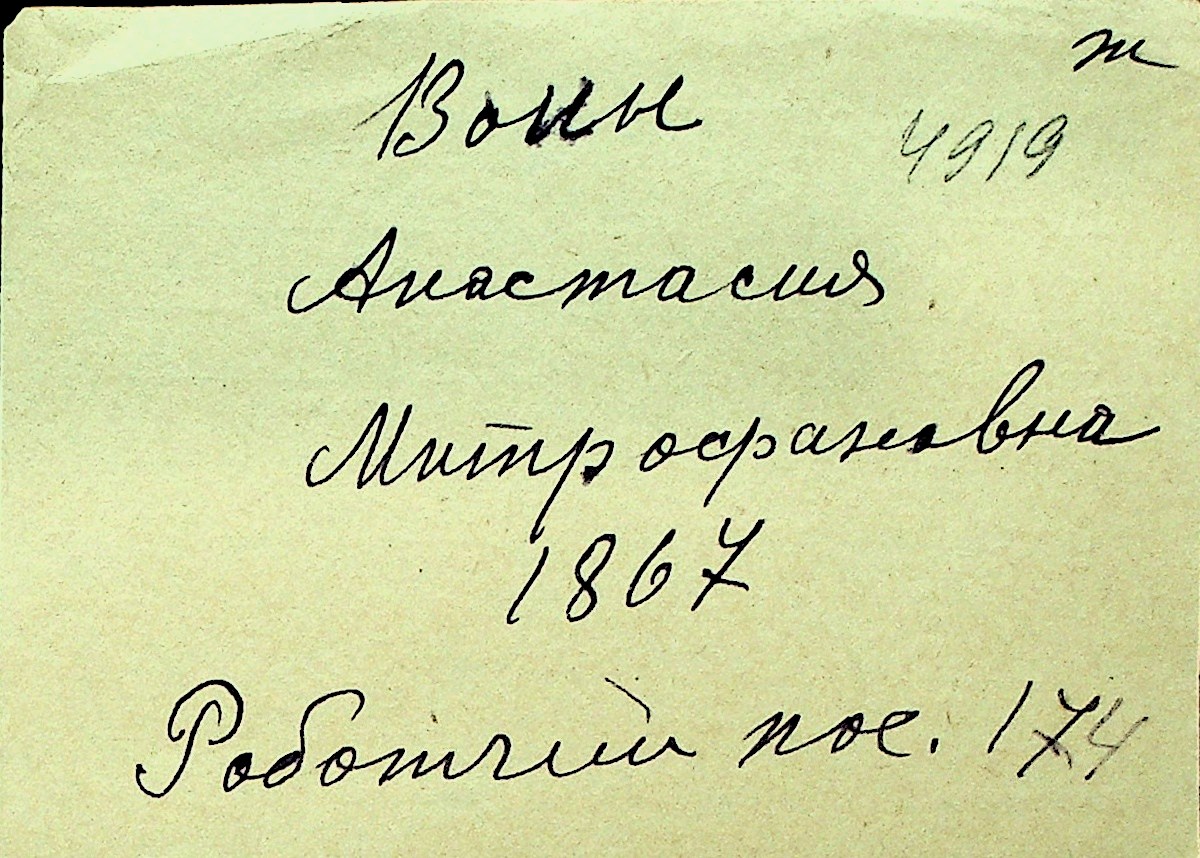 ж
Воин
4919
Анастасия
Митрофановна
1867
Роботчий пос. 174